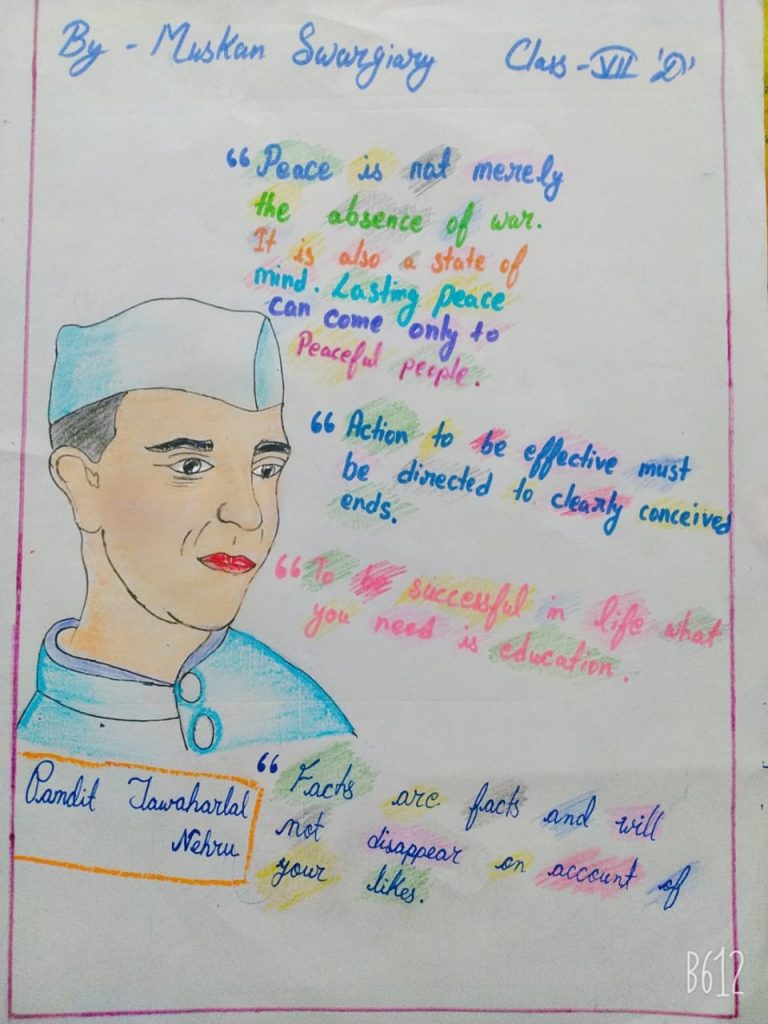 By - Muskan Swargiary Class - VII 'D'
“ Peace is not merely
the absence of war.
It is also a state of
mind. Lasting peace
can come only to
Peaceful people.
“ Action to be effective must
be directed to clearly conceived
ends.
“ To be successful in life what
you need is education.
Pandit Jawaharlal
Nehru
“ Facts are facts and will
not disappear on account of
your likes.
B612